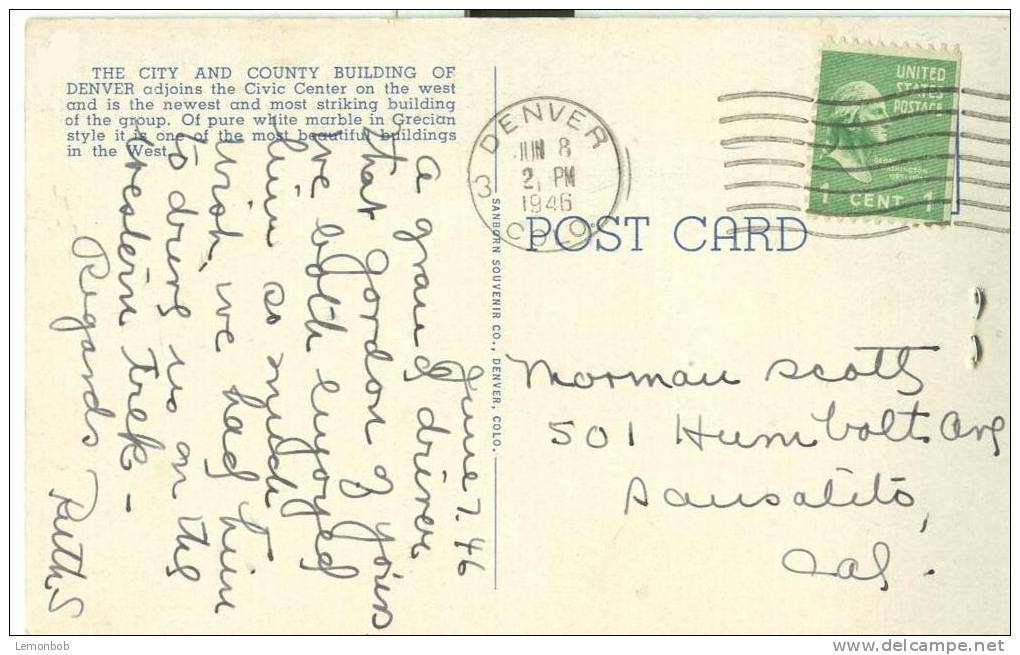 THE CITY AND COUNTY BUILDING OF
DENVER adjoins the Civic Center on the west
and is the newest and most striking building
of the group. Of pure white marble in Grecian
style it is one of the most beautiful buildings
in the West.
June 7. 46
a grand driver
that gordon of yours
we both enjoyed
him so much
wish we had him
to drive us on the
western trek -
Regards - Ruth S
SANBORN SOUVENIR CO., DENVER, COLO.
DENVER
JUN 8
2 PM
1946
3
COLO.
UNITED
STATES
POSTAGE
GEORGE
WASHINGTON
1 CENT 1
POST CARD
Norman Scott
501 Humbolt Ave
Sausalito,
Cal.
Lemonbob
www.delcampe.net